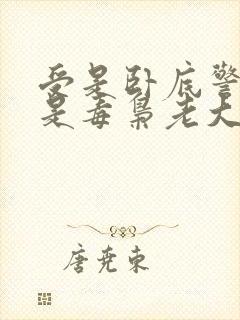 受是卧底警
是毒枭老大
唐尧东